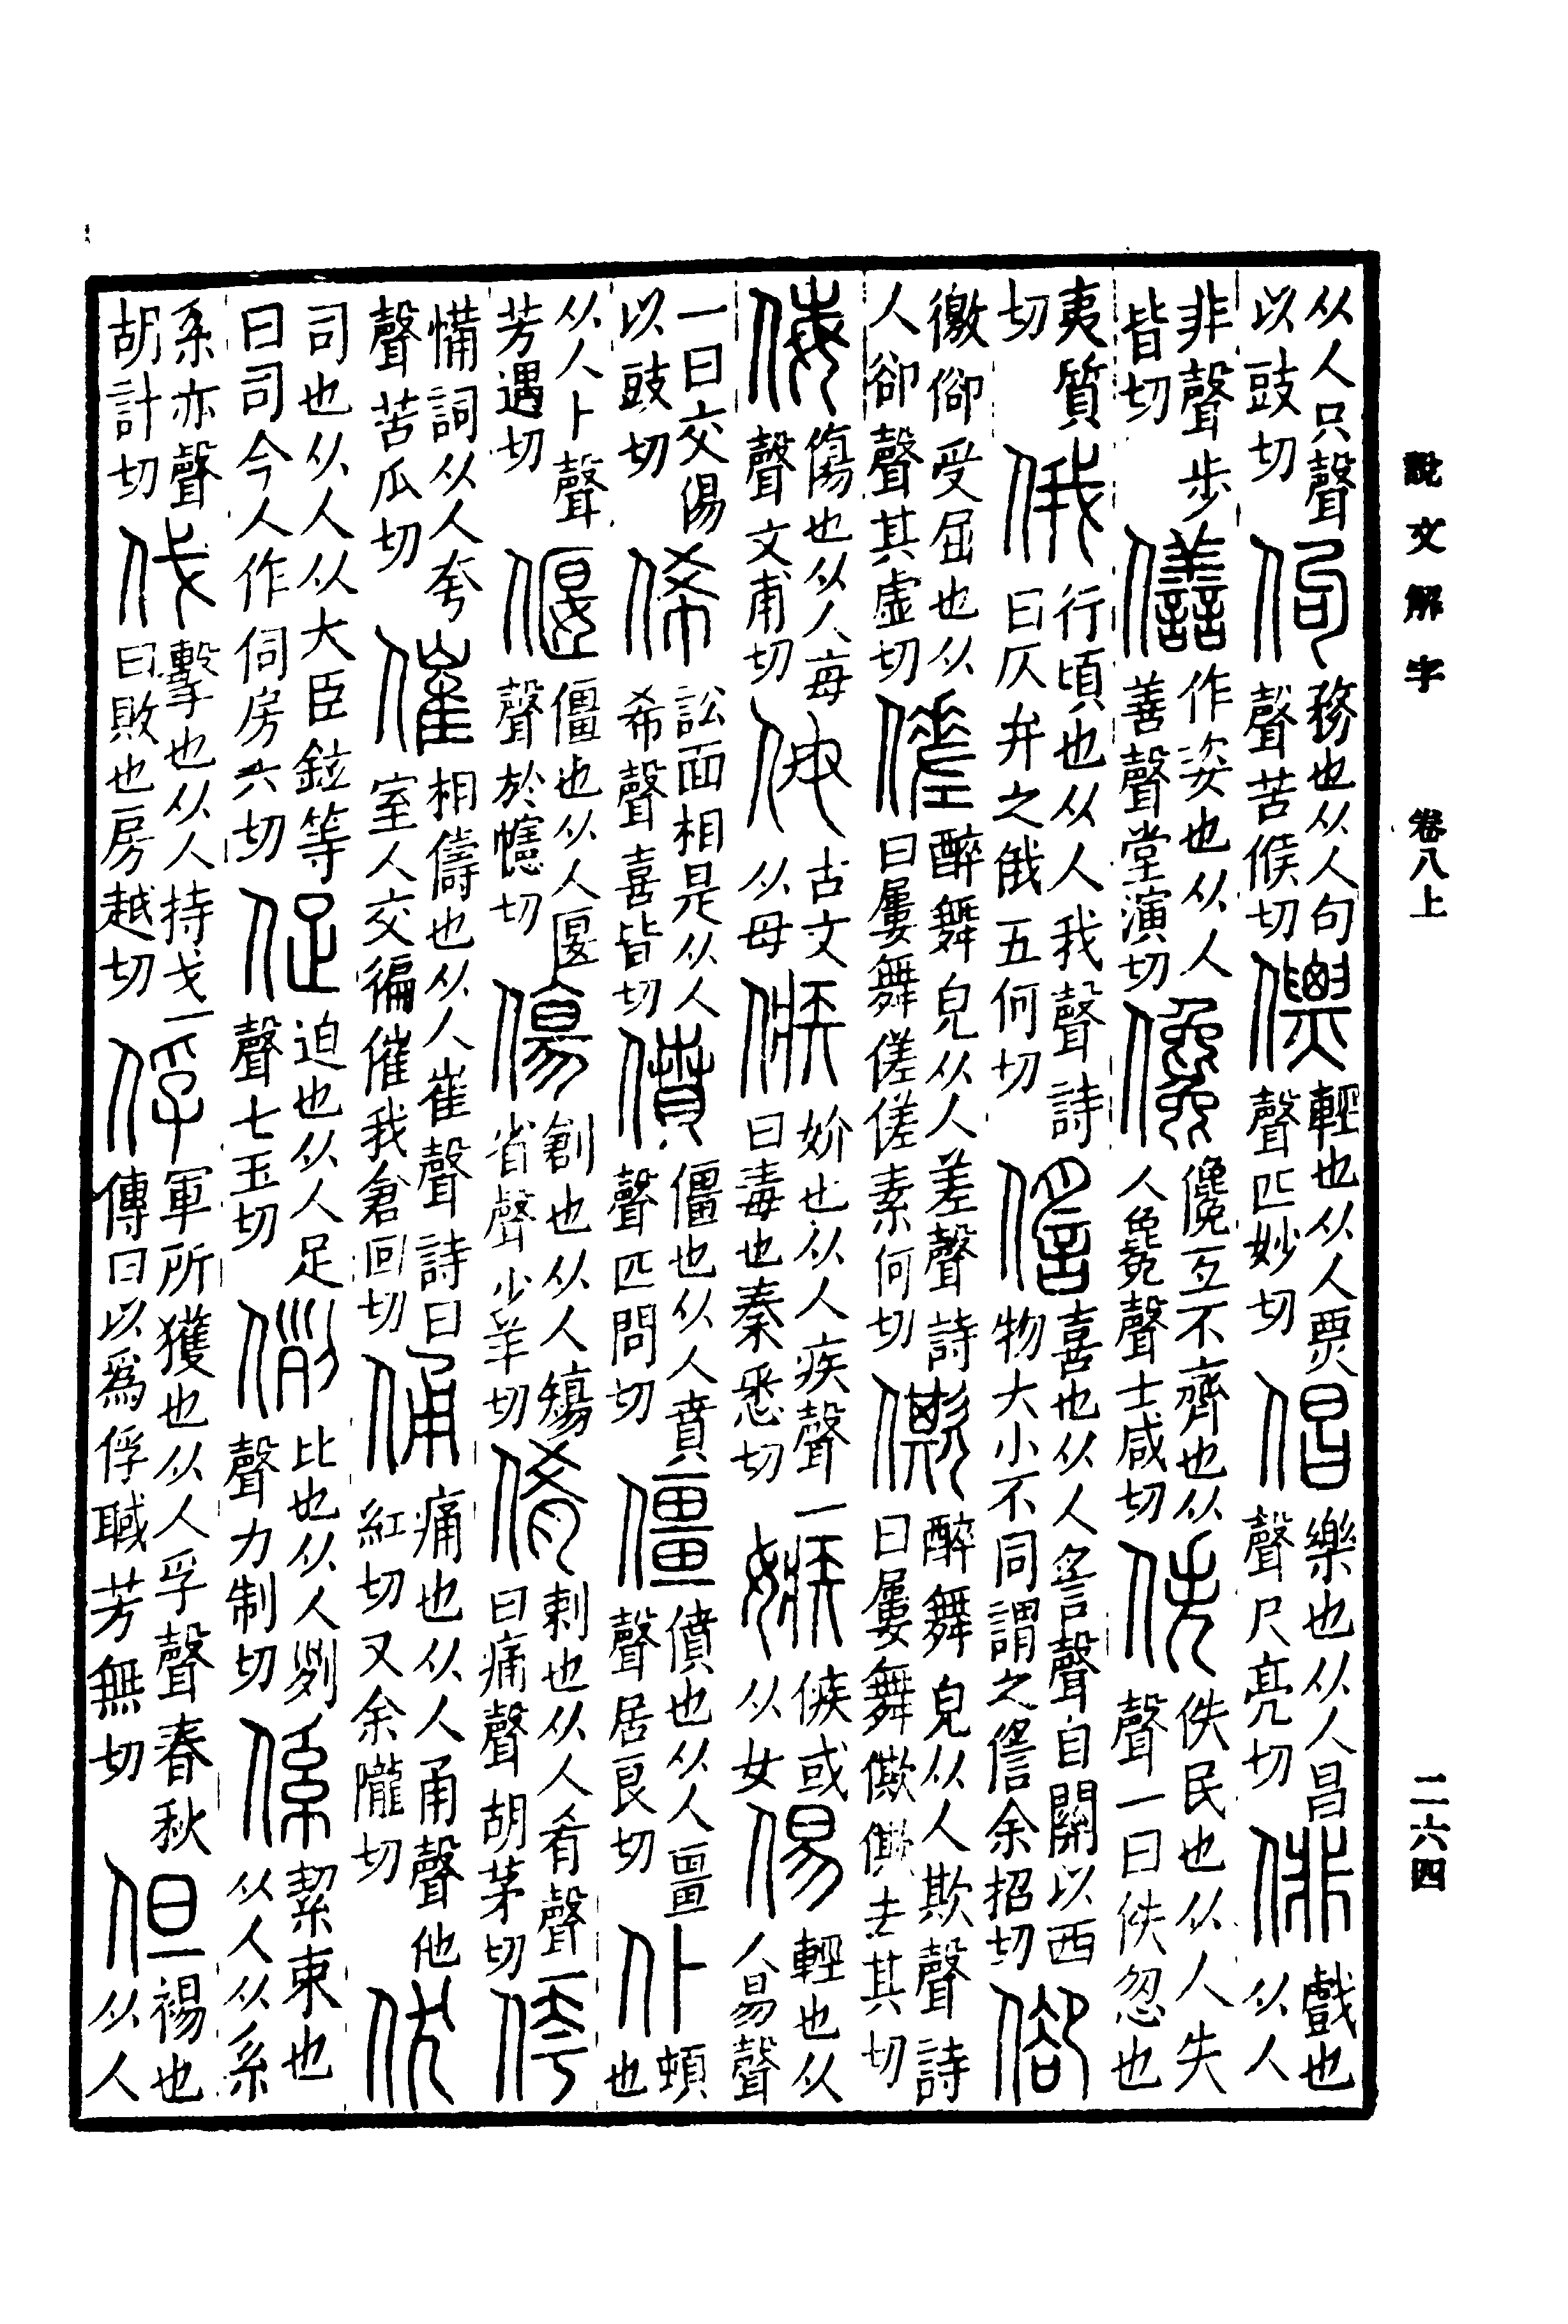 說文解字 卷八上 二六四
从人只聲以豉切 佝 務也从人句聲苦候切 僄 輕也从人票聲匹妙切 倡 樂也从人昌聲尺亮切 俳 戲也从人
非聲步皆切 僐 作姿也从人善聲堂演切 儳 儳互不齊也从人毚聲士咸切 佚 佚民也从人失聲一曰佚忽也
夷質切 俄 行頃也从人我聲詩曰仄弁之俄五何切 㒡 喜也从人䚻聲自關以西物大小不同謂之㒡余招切 𠊬
徼𠊬受屈也从人卻聲其虐切 傞 醉舞皃从人差聲詩曰屢舞傞傞素何切 僛 醉舞皃从人欺聲詩曰屢舞僛僛去其切
侮 傷也从人每聲文甫切 㑄 古文从母 㑵 妎也从人疾聲一曰毒也秦悉切 嫉 㑵或从女 㑥 輕也从人易聲
一曰交㑥以豉切 俙 訟面相是从人希聲喜皆切 僨 僵也从人賁聲匹問切 僵 僨也从人畺聲居良切 仆 頓也
从人卜聲芳遇切 偃 僵也从人匽聲於幰切 傷 創也从人𥏻省聲少羊切 倄 刺也从人肴聲一曰痛聲胡茅切 侉
憊詞从人夸聲苦瓜切 催 相儔也从人崔聲詩曰室人交徧催我倉回切 俑 痛也从人甬聲他紅切又余隴切 伏
司也从人从犬臣鉉等曰司今人作伺房六切 促 迫也从人足聲七玉切 例 比也从人列聲力制切 係 絜束也从人从系
系亦聲胡計切 伐 擊也从人持戈一曰敗也房越切 俘 軍所獲也从人孚聲春秋傳曰以爲俘聝芳無切 但 裼也从人